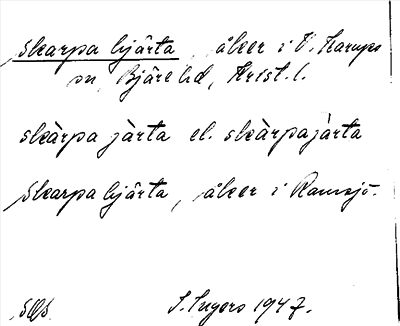 Skarpa hjärta, åker i V. Karups
sn, Bjäre hd, Krist. l.
skàrpa jàrta el. skàrpajàrta
Skarpahjärta, åker i Ramsjö.
S. Ingers 1947.